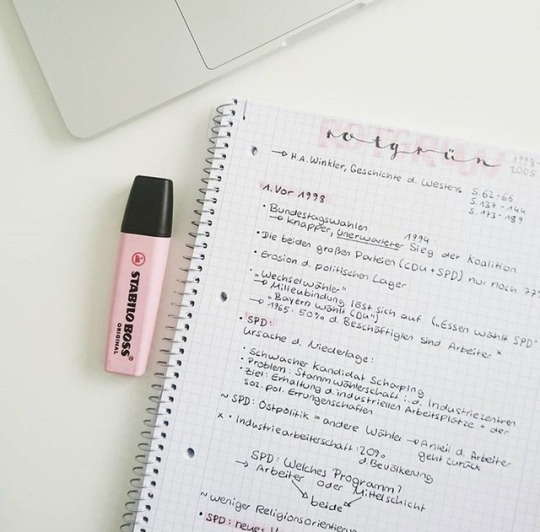 rotgrün 1998-
2005
→ H.A. Winkler, Geschichte d. Westens S. 62-66
S. 137-144
S. 173-189
1. Vor 1998
• Bundestagswahlen 1994
→ knapper, unerwarteter Sieg der Koalition
• Die beiden großen Parteien (CDU + SPD) nur noch 77%
• Erosion d. politischen Lager
• „Wechselwähler"
→ Milieubindung löst sich auf („Essen wählt SPD"
→ „Bayern wählt CDU")
1965: 50% d. Beschäftigten sind Arbeiter x
• SPD:
Ursache d. Niederlage:
• Schwacher Kandidat Scharping
• Problem: Stammwählerschaft: d. Industriezentren
• Ziel: Erhaltung d. industriellen Arbeitsplätze + der
soz. pol. Errungenschaften
~ SPD: Ostpolitik = andere Wähler → Anteil d. Arbeiter
geht zurück
x • Industriearbeiterschaft: 20%
d. Bevölkerung
SPD: Welches Programm?
→ Arbeiter oder Mittelschicht
beide
~ weniger Religionsorientierung
• SPD: neues
STABILO BOSS
ORIGINAL